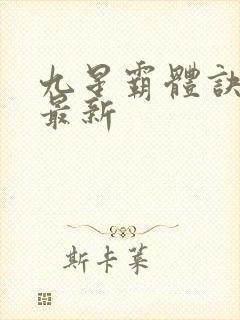 九星霸體訣
最新
斯卡萊